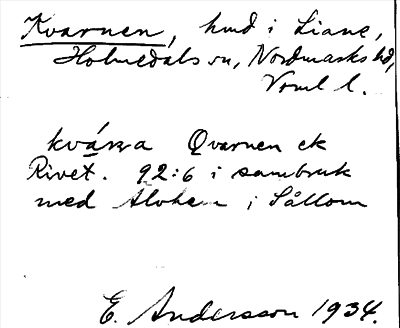 Kvarnen, hmd i Liane,
Holmedals sn, Nordmarks hd,
Vrml l.
kvárna Qvarnen ek
Rivet. 92:6 i sambruk
med Älvhem i Sållom
E. Andersson 1934.